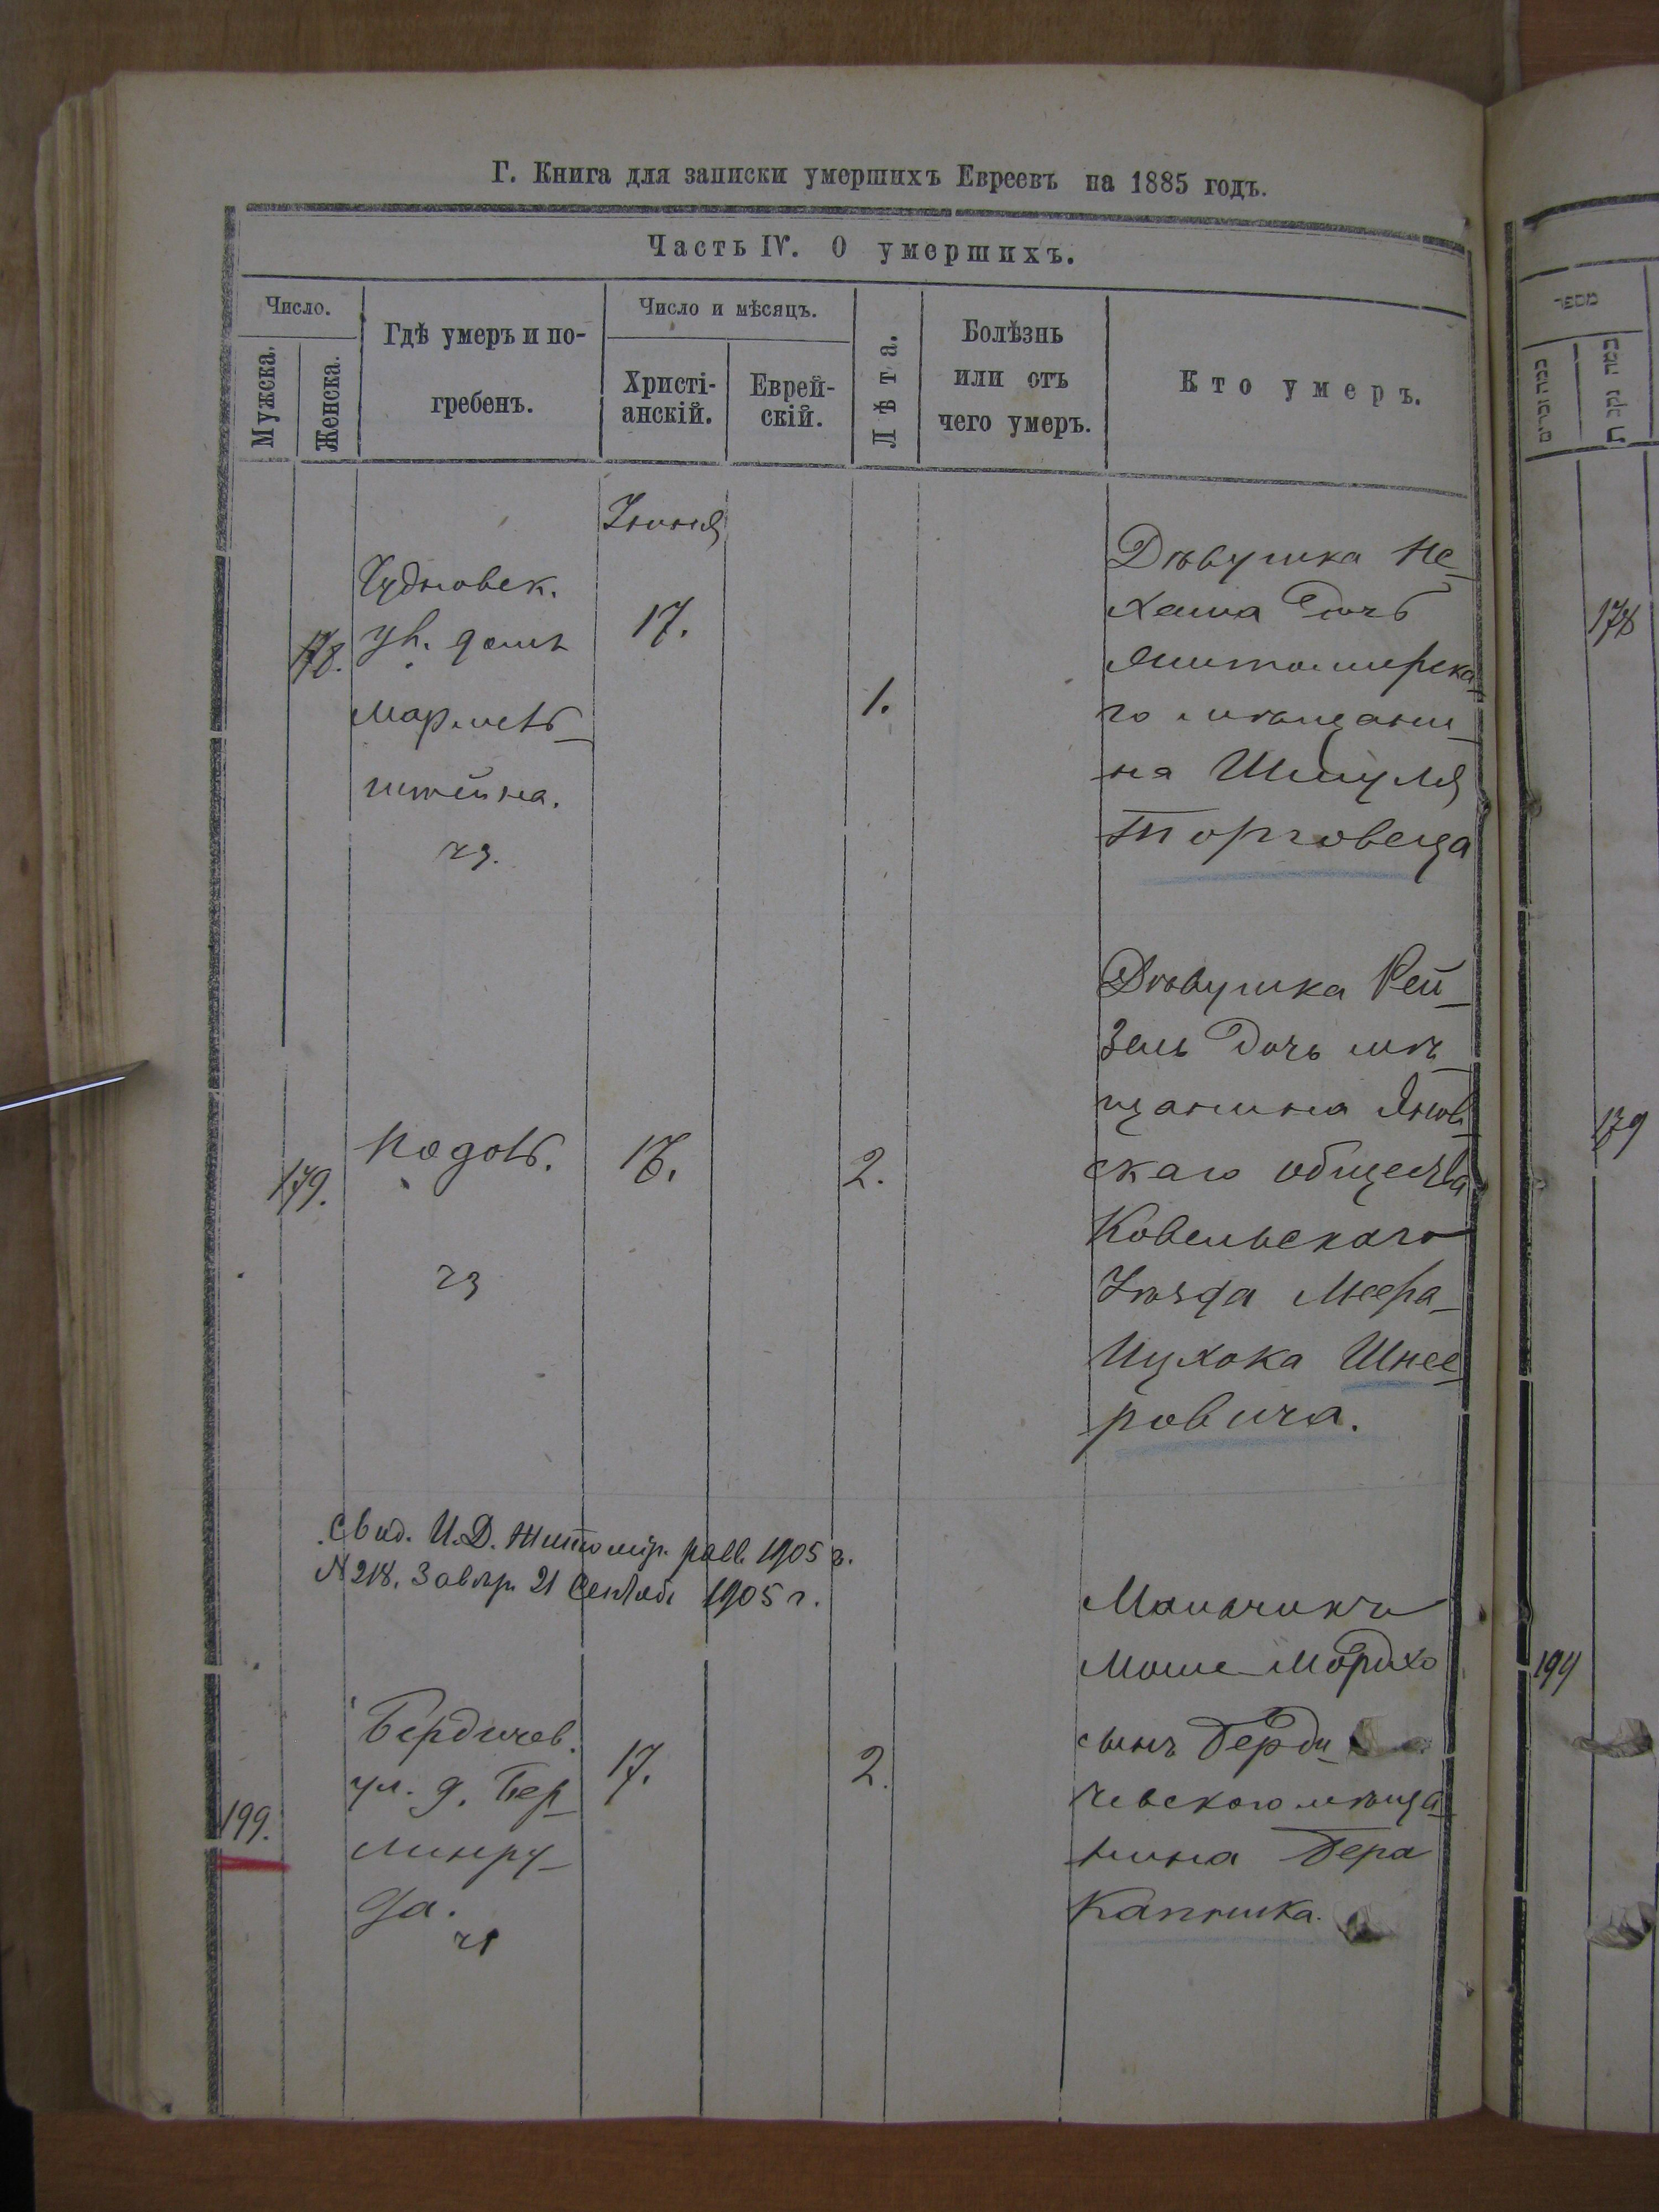 Г. Книга для записки умершихъ Евреевъ на 1885 годъ.
Часть IV. О умершихъ.
Число.
Мужска.
Женска.
Гдѣ умеръ и по-
гребенъ.
Число и мѣсяцъ.
Христі-
анскій.
Еврей-
скій.
Лѣта.
Болѣзнь
или отъ
чего умеръ.
Кто умеръ.
מספר
Іюня
178.
Чудновск.
ул. домъ
штейна.
17.
1.
Дѣвушка Не-
хама Дочь
Житомирска-
го мѣщани-
на Шмуля
Торговеца
178
179.
2.
Дѣвушка Рей-
зель Дочь мѣ-
щанина Янов-
скаго общества
Ковельскаго
Уѣзда Меера-
Ицхока Шнее-
ровича.
179
Свид. И.Д. Житомір. равв. 1905 г.
№ 218. Завѣр. 21 Сентяб. 1905 г.
199.
Бердичев.
ул. д. Бер-
линру-
да.
17.
2.
Мальчикъ
Моше-Мордхо
сынъ Берди-
чевскаго мѣща-
нина Бера
Капника.
199